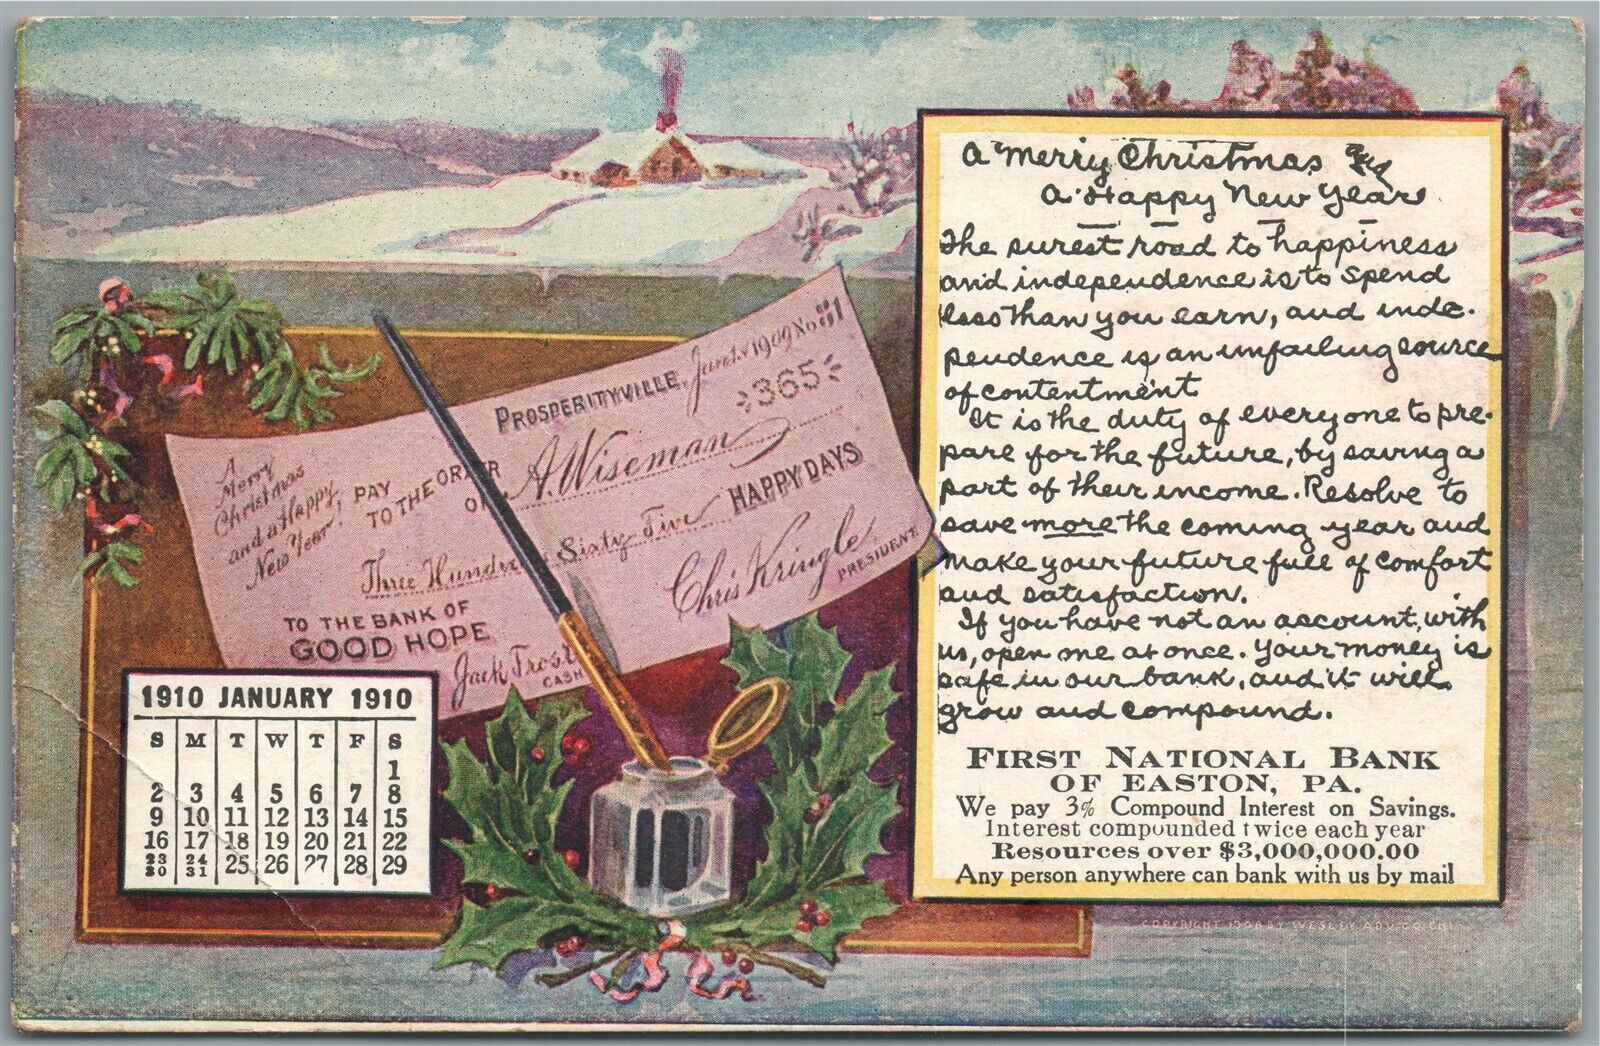 A Merry Christmas and
A Happy New Year
The surest road to happiness
and independence is to spend
less than you earn, and inde-
pendence is an unfailing source
of contentment
It is the duty of everyone to pre-
pare for the future, by saving a
part of their income. Resolve to
save more the coming year and
make your future full of comfort
and satisfaction.
If you have not an account, with
us, open one at once. Your money is
safe in our bank, and it will
grow and compound.
FIRST NATIONAL BANK
OF EASTON, PA.
We pay 3% Compound Interest on Savings.
Interest compounded twice each year
Resources over $3,000,000.00
Any person anywhere can bank with us by mail
COPYRIGHT 1908 BY WESLEY ADV. CO. CHI
PROSPERITYVILLE, Jan. 1. 1909 No. 1
365
A Merry Christmas and a Happy New Year!
PAY TO THE ORDER OF A. Wiseman
Three Hundred Sixty Five HAPPY DAYS
TO THE BANK OF
GOOD HOPE
Chris Kringle
PRESIDENT.
Jack Frost
CASH
1910 JANUARY 1910
S M T W T F S
1
2 3 4 5 6 7 8
9 10 11 12 13 14 15
16 17 18 19 20 21 22
23/30 24/31 25 26 27 28 29